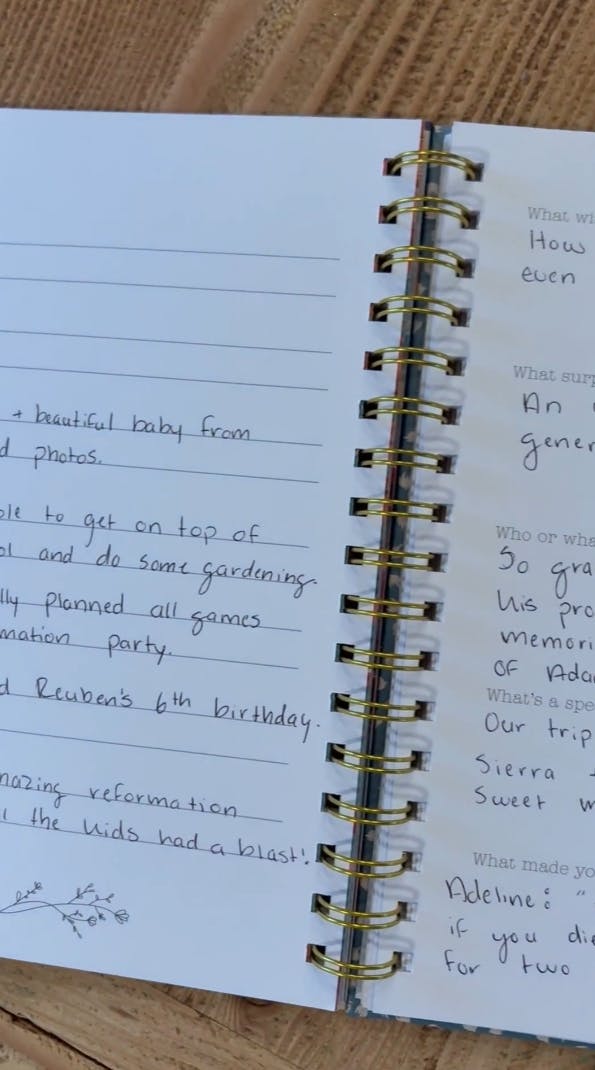 + beautiful baby from
d photos.
ole to get on top of
ol and do some gardening.
lly planned all games
mation party.
d Reuben's 6th birthday.
mazing reformation
l the kids had a blast!
What wi
How
even
What surp
An
gener
Who or wha
So gra
his pro
memori
of Ada
What's a spe
Our trip
Sierra +
Sweet m
What made yo
Adeline: "
if you die
for two